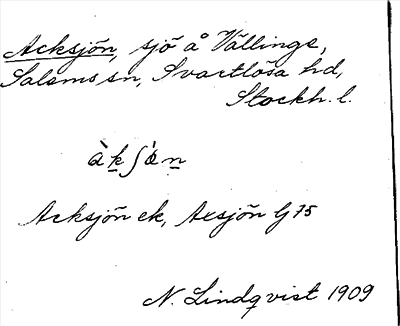 Acksjön, sjö å Vällinge,
Salems sn, Svartlösa hd,
Stockh. l.
àkʃœ́n
Acksjön ek, Axsjön G 75
N. Lindqvist 1909